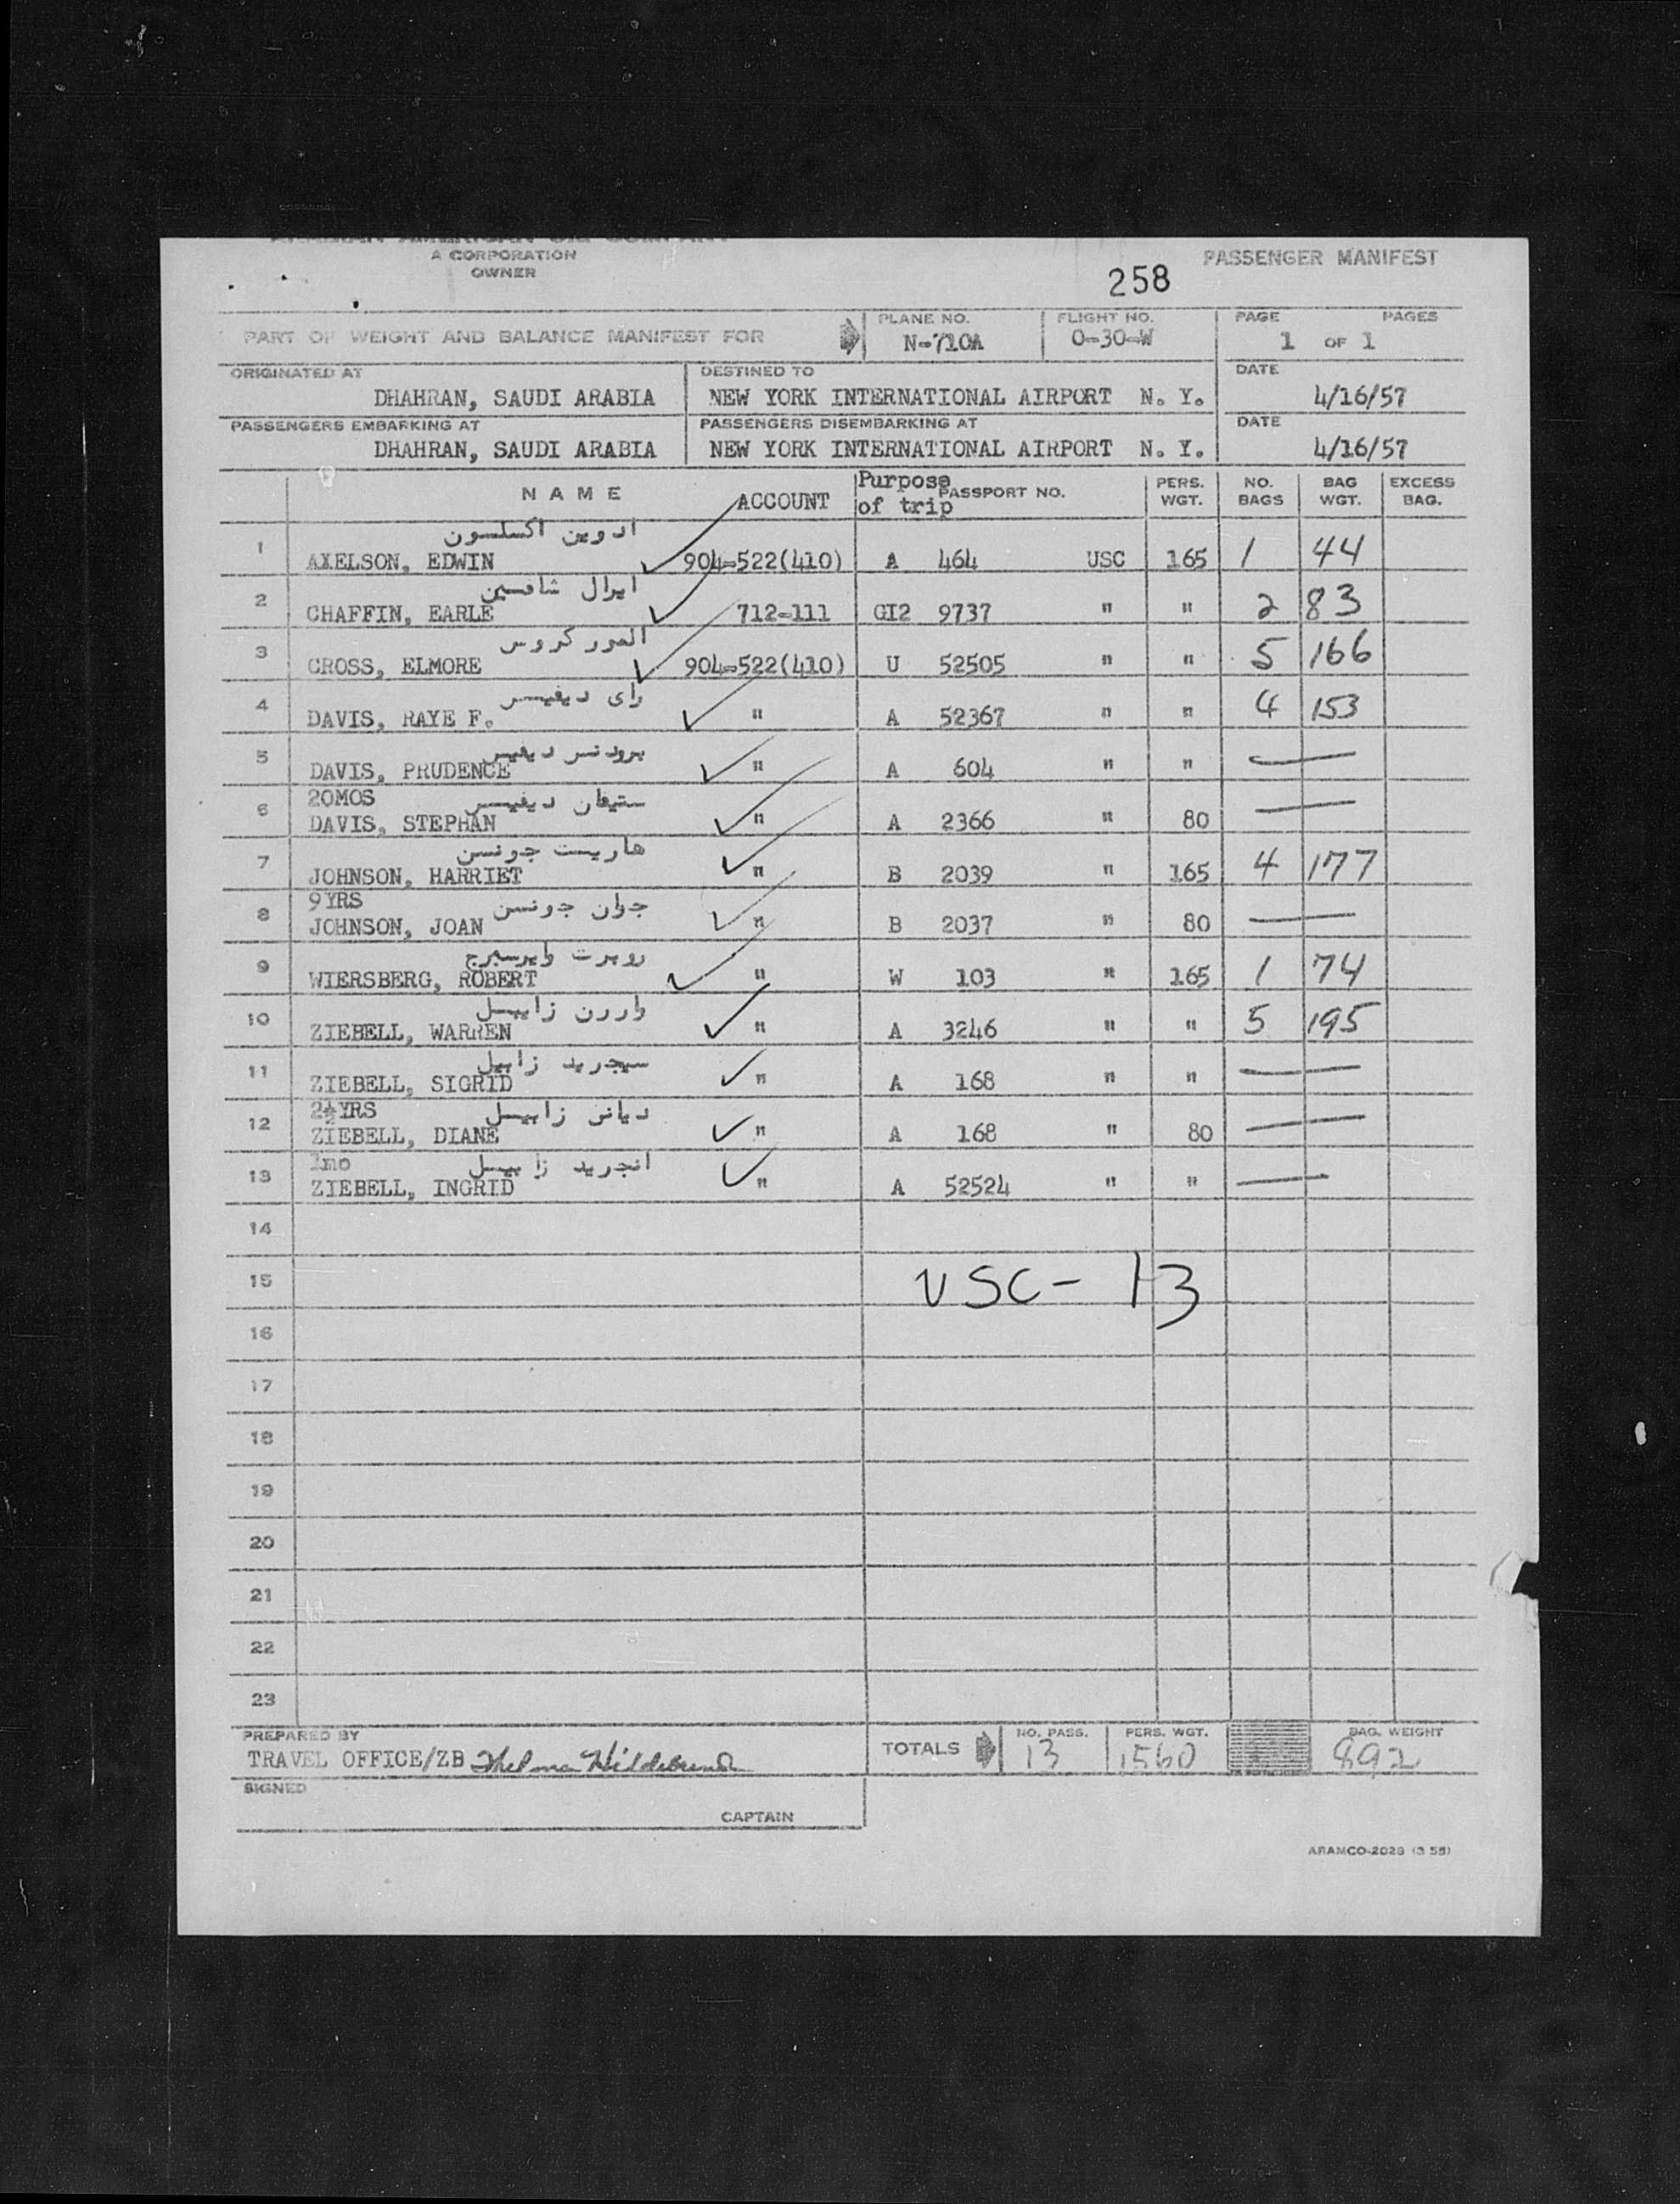 ARABIAN AMERICAN OIL COMPANY
A CORPORATION
OWNER
PASSENGER MANIFEST
258
PART OF WEIGHT AND BALANCE MANIFEST FOR
PLANE NO. FLIGHT NO. PAGE PAGES
N-710A O-30-W 1 OF 1
ORIGINATED AT DESTINED TO DATE
DHAHRAN, SAUDI ARABIA NEW YORK INTERNATIONAL AIRPORT N. Y. 4/16/57
PASSENGERS EMBARKING AT PASSENGERS DISEMBARKING AT DATE
DHAHRAN, SAUDI ARABIA NEW YORK INTERNATIONAL AIRPORT N. Y. 4/16/57
NAME ACCOUNT Purpose of trip PASSPORT NO. PERS. WGT. NO. BAGS BAG WGT. EXCESS BAG.
ادوين اكسلسون
1 AXELSON, EDWIN 904-522(410) A 464 USC 165 1 44
ايرال شافسين
2 CHAFFIN, EARLE 712-111 GI2 9737 " " 2 83
المور كروس
3 CROSS, ELMORE 904-522(410) U 52505 " " 5 166
راى ديفيس
4 DAVIS, RAYE F. " A 52367 " " 4 153
برودنس ديفيس
5 DAVIS, PRUDENCE " A 604 " " —
20MOS ستيفان ديفيس
6 DAVIS, STEPHAN " A 2366 " 80 —
هاريست جونسن
7 JOHNSON, HARRIET " B 2039 " 165 4 177
9YRS جوان جونسن
8 JOHNSON, JOAN " B 2037 " 80 —
روبرت وايرسبرج
9 WIERSBERG, ROBERT " W 103 " 165 1 74
واررن زابيل
10 ZIEBELL, WARREN " A 3246 " " 5 195
سيجريد زابيل
11 ZIEBELL, SIGRID " A 168 " " —
2½YRS ديانر زابيل
12 ZIEBELL, DIANE " A 168 " 80 —
mo انجريد زابيل
13 ZIEBELL, INGRID " A 52524 " " —
14
15 USC- 13
16
17
18
19
20
21
22
23
PREPARED BY TOTALS NO. PASS. PERS. WGT. BAG. WEIGHT
TRAVEL OFFICE/ZB Thelma Hildebrand 13 1560 892
SIGNED
CAPTAIN
ARAMCO-2028 (3 55)